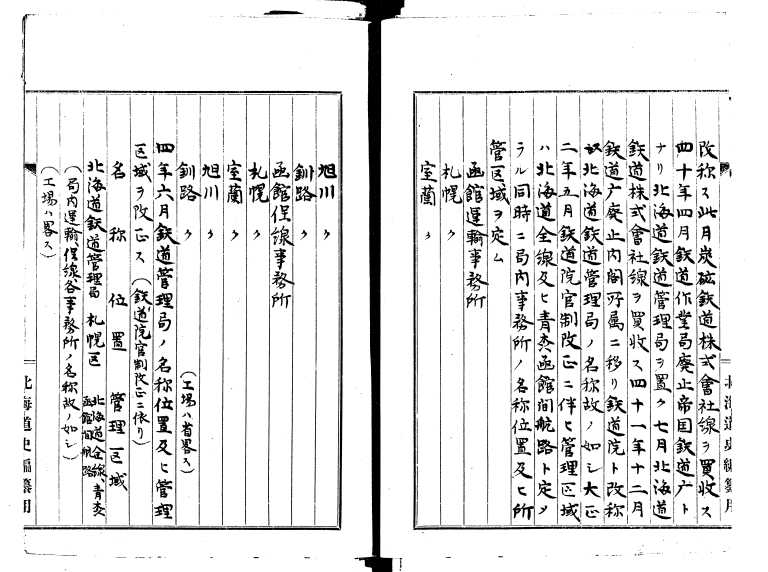 改称ス此月炭礦鉄道株式會社線ヲ買收ス
四十年四月鉄道作業局廃止帝国鉄道广ト
ナリ北海道鉄道管理局ヲ置ク七月北海道
鉄道株式會社線ヲ買收ス四十一年十二月
鉄道广廃止内閣所属ニ移リ鉄道院ト改称
北海道鉄道管理局ノ名称故ノ如シ大正
二年五月鉄道院官制改正ニ伴ヒ管理区域
ハ北海道全線及ヒ青森函館間航路ト定メ
ラル同時ニ局内事務所ノ名称位置及ヒ所
管区域ヲ定ム
函館運輸事務所
札幌〃
室蘭〃
北海道史編纂用
旭川〃
釧路〃
函館保線事務所
札幌〃
室蘭〃
旭川〃
釧路〃
(工場ハ省畧ス)
四年六月鉄道管理局ノ名称位置及ヒ管理
区域ヲ改正ス(鉄道院官制改正ニ依リ)
名称 位置 管理区域
北海道鉄道管理局 札幌区 北海道全線、青森函館間航路
(局内運輸、保線各事務所ノ名称故ノ如シ)
(工場ハ畧ス)
北海道史編纂用